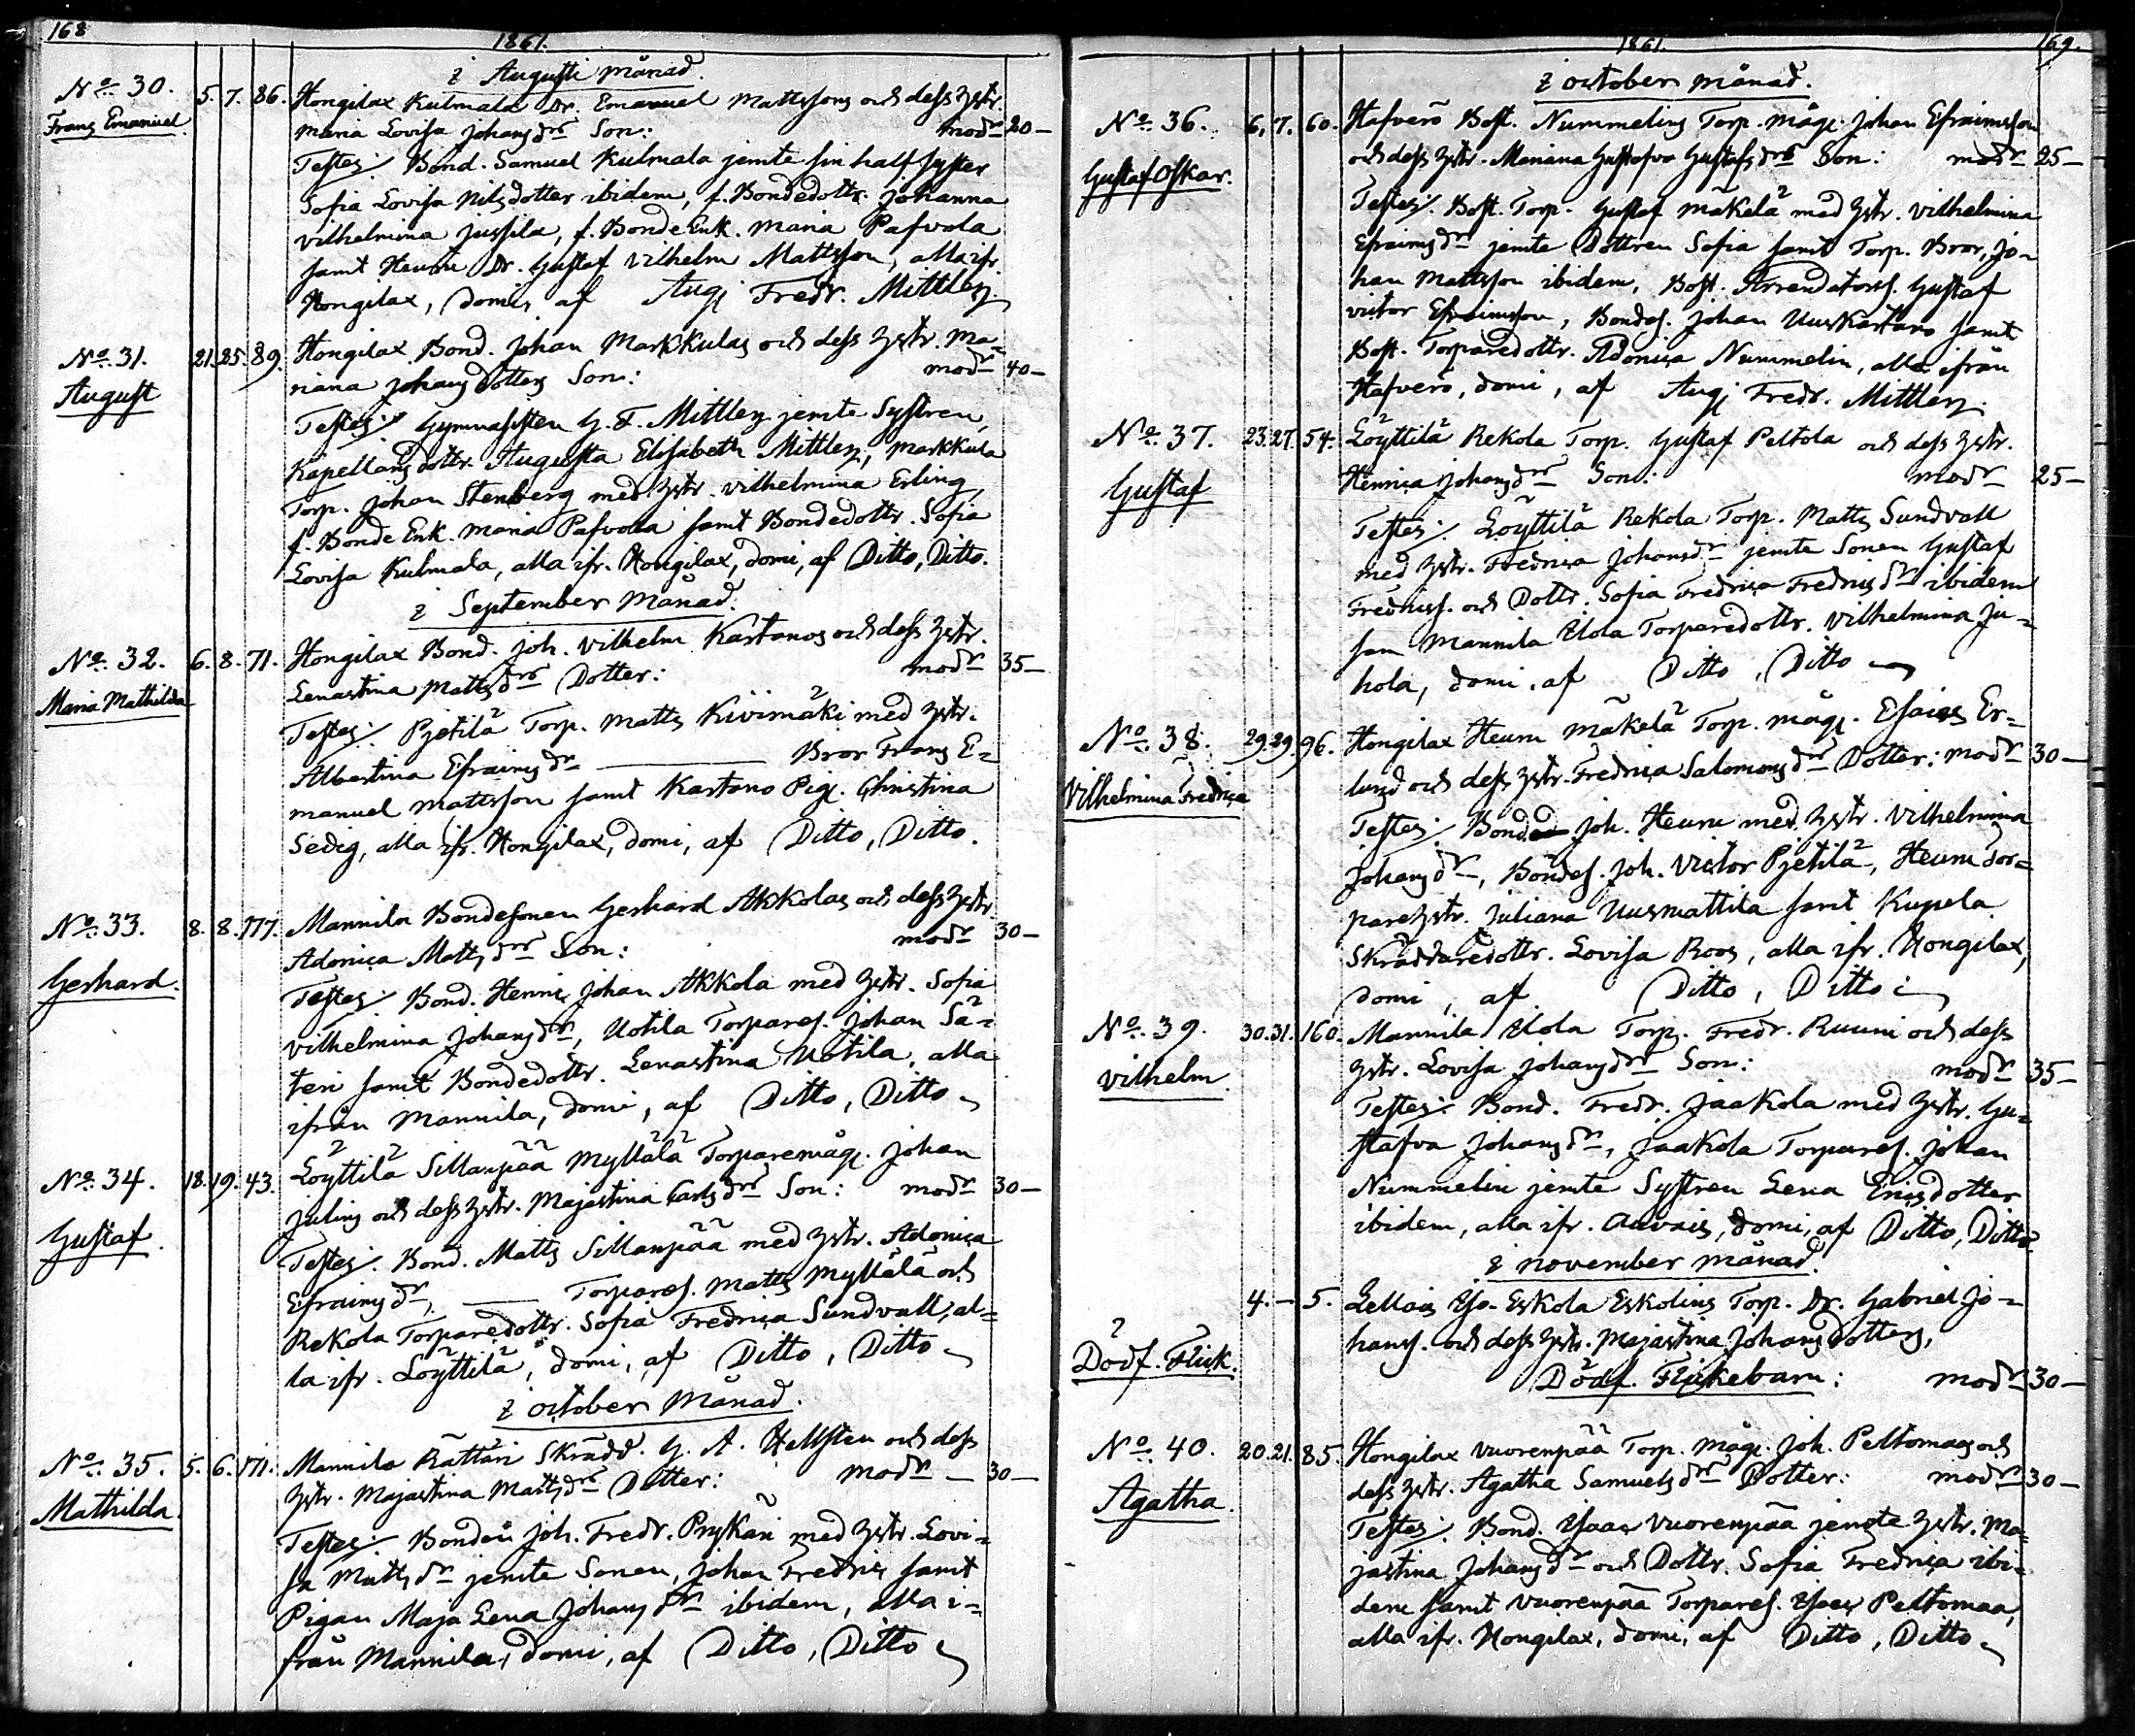 168
1861.
i Augusti månad.
No 30. 5. 7. 86. Hongilax Kulmala Dr. Emanuel Mattssons och dess hstr.
Frans Emanuel. Maria Lovisa Johansdrs Son: modr 20-
Testes: Bond. Samuel Kulmala jemte sin half syster
Sofia Lovisa Nilsdotter ibidem, f. Bondedottr. Johanna
Vilhelmina Jussila, f. Bonde Enk. Maria Pafvola
samt Heurn Dr. Gustaf Vilhelm Mattsson, alla ifr.
Hongilax, domi, af Aug: Fredr. Mittler.
No 31. 21. 25. 89. Hongilax Bond. Johan Markkulas och dess hstr. Ma-
August riana Johansdotters Son: modr 40-
Testes: Gymnasisten G. F. Mittler jemte Systren,
Kapellansdottr. Augusta Elisabeth Mittler, Markkula
Torp. Johan Stenberg med hstr. Vilhelmina Erling,
f. Bonde Enk. Maria Pafvola samt Bondedottr. Sofia
Lovisa Kulmala, alla ifr. Hongilax, domi, af Ditto, Ditto.
i September månad.
No 32. 6. 8. 71. Hongilax Bond. Joh. Vilhelm Kartanos och dess hstr.
Maria Mathilda Lenastina Mattsdrs Dotter: modr 35-
Testes: Pjetilä Torp. Matts Kivimäki med hstr.
Albertina Efraimsdr — Bror Frans E-
manuel Mattsson samt Kartano Pig. Christina
Sedig, alla ifr. Hongilax, domi, af Ditto, Ditto.
No 33. 8. 8. 177. Mannila Bondesonen Gerhard Akkolas och dess hstr
Gerhard. Adonica Mattsdrs Son: modr 30-
Testes: Bond. Henric Johan Akkola med hstr. Sofia
Vilhelmina Johansdr, Uotila Torpares. Johan Sä-
teri samt Bondedottr. Lenastina Uotila, alla
ifrån Mannila, domi, af Ditto, Ditto
No 34. 18. 19. 43. Löyttilä Sillanpää Myllälä Torparemåg. Johan
Gustaf. Julins och dess hstr. Majastina Carlsdrs Son: modr 30-
Testes: Bond. Matts Sillanpää med hstr. Adonica
Efraimsdr, — Torpares. Matts Myllälä och
Rekola Torparedottr. Sofia Fredrica Sundvall, al-
la ifr. Löyttilä, domi, af Ditto, Ditto
i October månad.
No 35. 5. 6. 171. Mannila Rättäri Skrädd. G. A. Hellsten och dess
Mathilda. hstr. Majastina Mattsdrs Dotter: modr - 30-
Testes: Bonden Joh. Fredr. Prykäri med hstr. Lovi-
sa Mattsdr jemte Sonen, Johan Fredric samt
Pigan Maja Lena Johansdr ibidem, alla i-
från Mannila, domi, af Ditto, Ditto
169.
1861.
i October månad.
No 36. 6. 7. 60. Hafverö Bost. Nummelins Torp. måg. Johan Efraimsson
Gustaf Oskar. och dess hstr. Mariana Gustafva Gustafsdrs Son: modr 25-
Testes: Bost. Torp. Gustaf Mäkelä med hstr. Vilhelmina
Efraimsdr jemte Dottren Sofia samt Torp. Bror, Jo-
han Mattsson ibidem, Bost. Arrendators. Gustaf
Victor Efraimsson, Bondes. Johan Uuskartano samt
Bost. Torparedottr. Adonica Nummelin, alla ifrån
Hafverö, domi, af Aug: Fredr. Mittler.
No 37. 23. 27. 54. Löyttilä Rekola Torp. Gustaf Peltola och dess hstr.
Gustaf Henrica Johansdrs Son: modr 25-
Testes: Löyttilä Rekola Torp. Matts Sundvall
med hstr. Fredrica Johansdr jemte Sonen Gustaf
Fredricss. och Dottr. Sofia Fredrica Fredricsdr ibidem
sam Mannila Ylola Torparedottr. Vilhelmina Ju-
hola, domi, af Ditto, Ditto
No 38. 29. 29. 96. Hongilax Heurn Mäkelä Torp. måg. Esaias Er-
Vilhelmina Fredrica lund och dess hstr. Fredrica Salomonsdrs Dotter: modr 30-
Testes: Bond Joh. Heurn med hstr. Vilhelmina
Johansdr, Bondes. Joh. Victor Pjetilä, Heurn Tor-
parehstr. Juliana Uusmattila samt Kupela
Skräddaredottr. Lovisa Roos, alla ifr. Hongilax,
domi, af Ditto, Ditto
No 39. 30. 31. 160. Mannila Ylola Torp. Fredr. Ruuni och dess
Vilhelm. hstr. Lovisa Johansdrs Son: modr 35-
Testes: Bond. Fredr. Jaakola med hstr. Gu-
stafva Johansdr, Jaakola Torpares. Johan
Nummelin jemte Systren Lena Ericsdotter
ibidem, alla ifr. Auvais, domi, af Ditto, Ditto
i November månad.
4. - 5. Lellais Yso-Eskola Eskolins Torp. Dr. Gabriel Jo-
hanss. och dess hstr. Majastina Johansdotters,
Dödf. Flick. Dödf. Flickebarn: modr 30-
No 40. 20. 21. 85. Hongilax Vuorenpää Torp. måg. Joh. Peltomaas och
Agatha. dess hstr. Agatha Samuelsdrs Dotter: modr 30-
Testes: Bond. Ysaac Vuorenpää jemte hstr. Ma-
jastina Johansdr och Dottr. Sofia Fredrica ibi-
dem samt Vuorenpää Torpares. Ysaac Peltomaa,
alla ifr. Hongilax, domi, af Ditto, Ditto